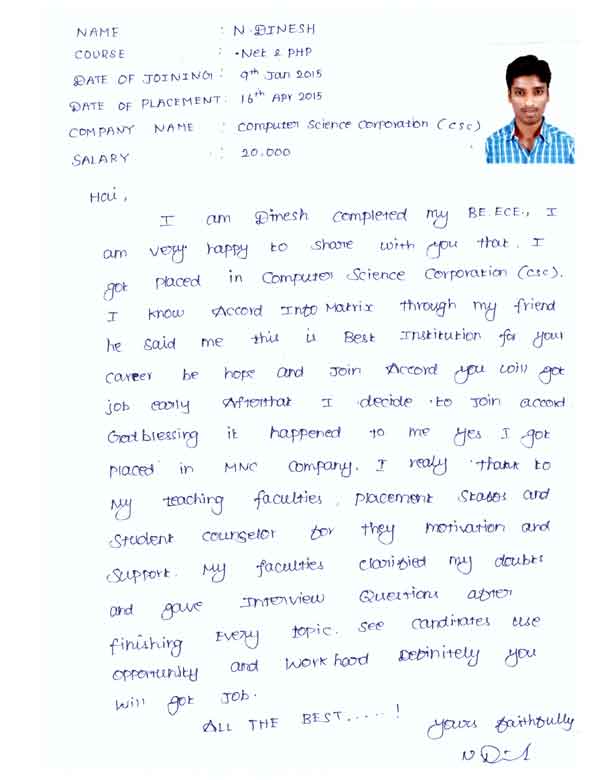 NAME : N. DINESH
COURSE : .Net & PHP
DATE OF JOINING : 9th Jan 2015
DATE OF PLACEMENT : 16th Apr 2015
COMPANY NAME : Computer Science Corporation (CSC)
SALARY : 20.000
Hai,
I am Dinesh completed my BE.ECE., I
am very happy to share with you that. I
got placed in Computer Science Corporation (CSC).
I know Accord Into Matrix through my friend
he said me this is Best Institution for your
career be hope and Join Accord you will got
job early Afterthat I decide to Join accord
God blessing it happened to me Yes I got
placed in MNC company. I realy thank to
My teaching faculties, placement Stabbs and
Student counselor for they motivation and
Support. My faculties clarified my doubts
and gave Interview Questions after
finishing Every topic. See candidates use
opportunity and work hard Definitely you
will got Job.
ALL THE BEST.....!
Yours faithfully